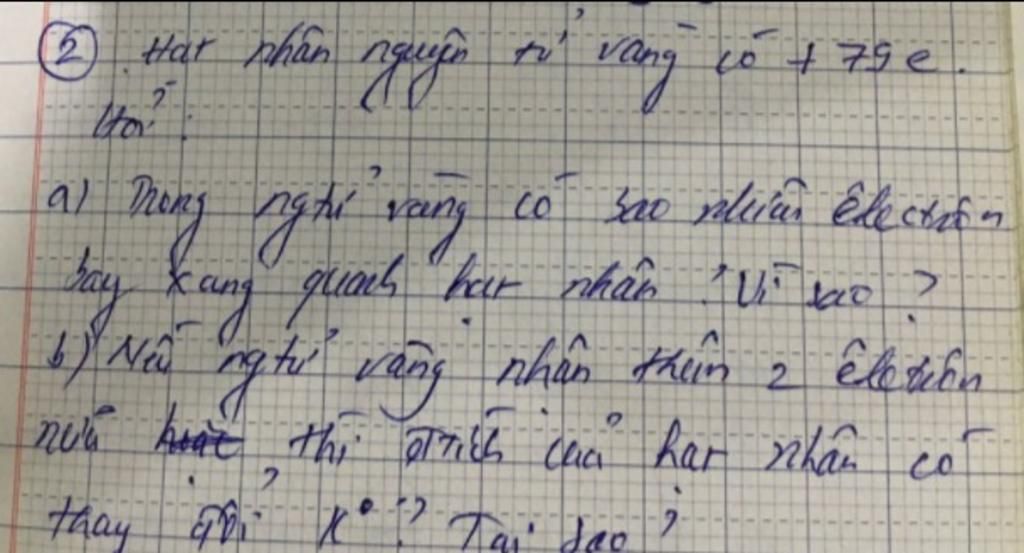 ② Hạt nhân nguyên tử vàng có + 79e.
Hỏi:
a) Trong ngtử vàng có bao nhiêu êlectrôn
bay xung quanh hạt nhân? Vì sao?
b) Nếu ngtử vàng nhận thêm 2 êlectrôn
nữa thì đtích của hạt nhân có
thay đổi k°? Tại sao?